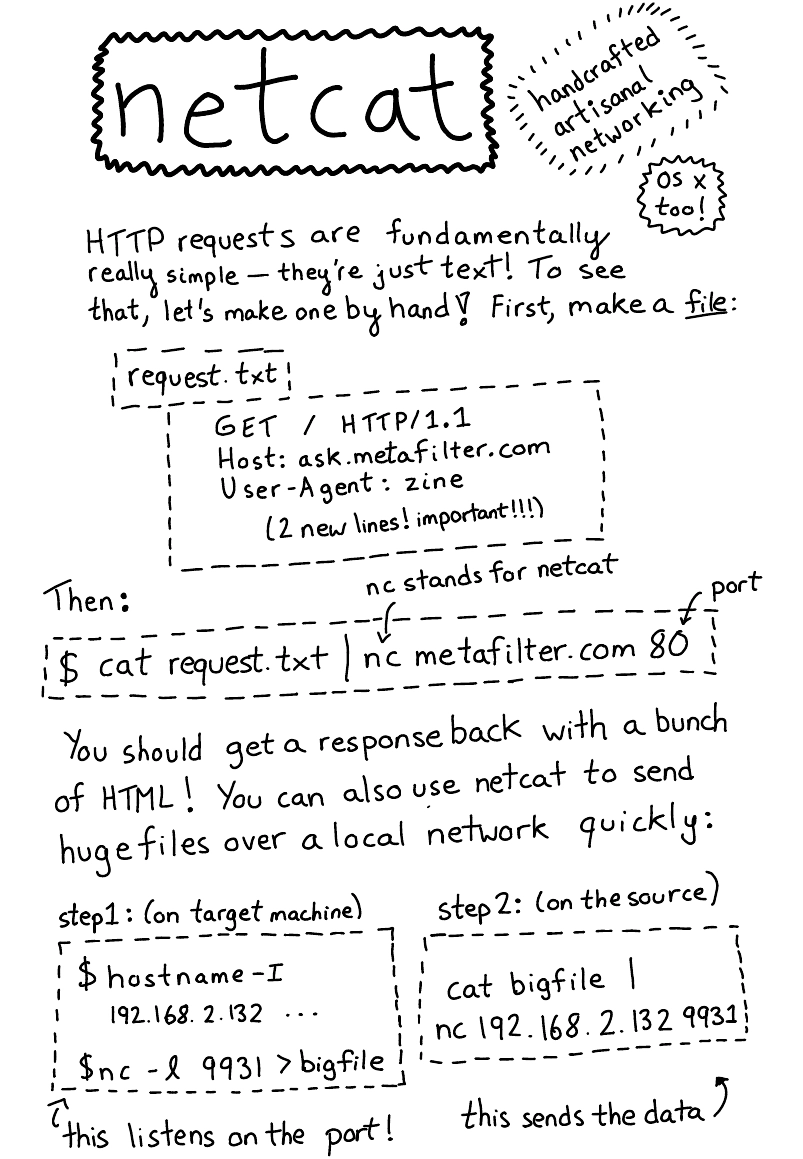 netcat
handcrafted
artisanal
networking
OS X
too!
HTTP requests are fundamentally
really simple — they're just text! To see
that, let's make one by hand! First, make a file:
request.txt
GET / HTTP/1.1
Host: ask.metafilter.com
User-Agent: zine
(2 new lines! important!!!)
Then:
nc stands for netcat
port
$ cat request.txt | nc metafilter.com 80
You should get a response back with a bunch
of HTML! You can also use netcat to send
huge files over a local network quickly:
step1: (on target machine)
$ hostname -I
192.168.2.132 ...
$nc -l 9931 > bigfile
this listens on the port!
step2: (on the source)
cat bigfile |
nc 192.168.2.132 9931
this sends the data